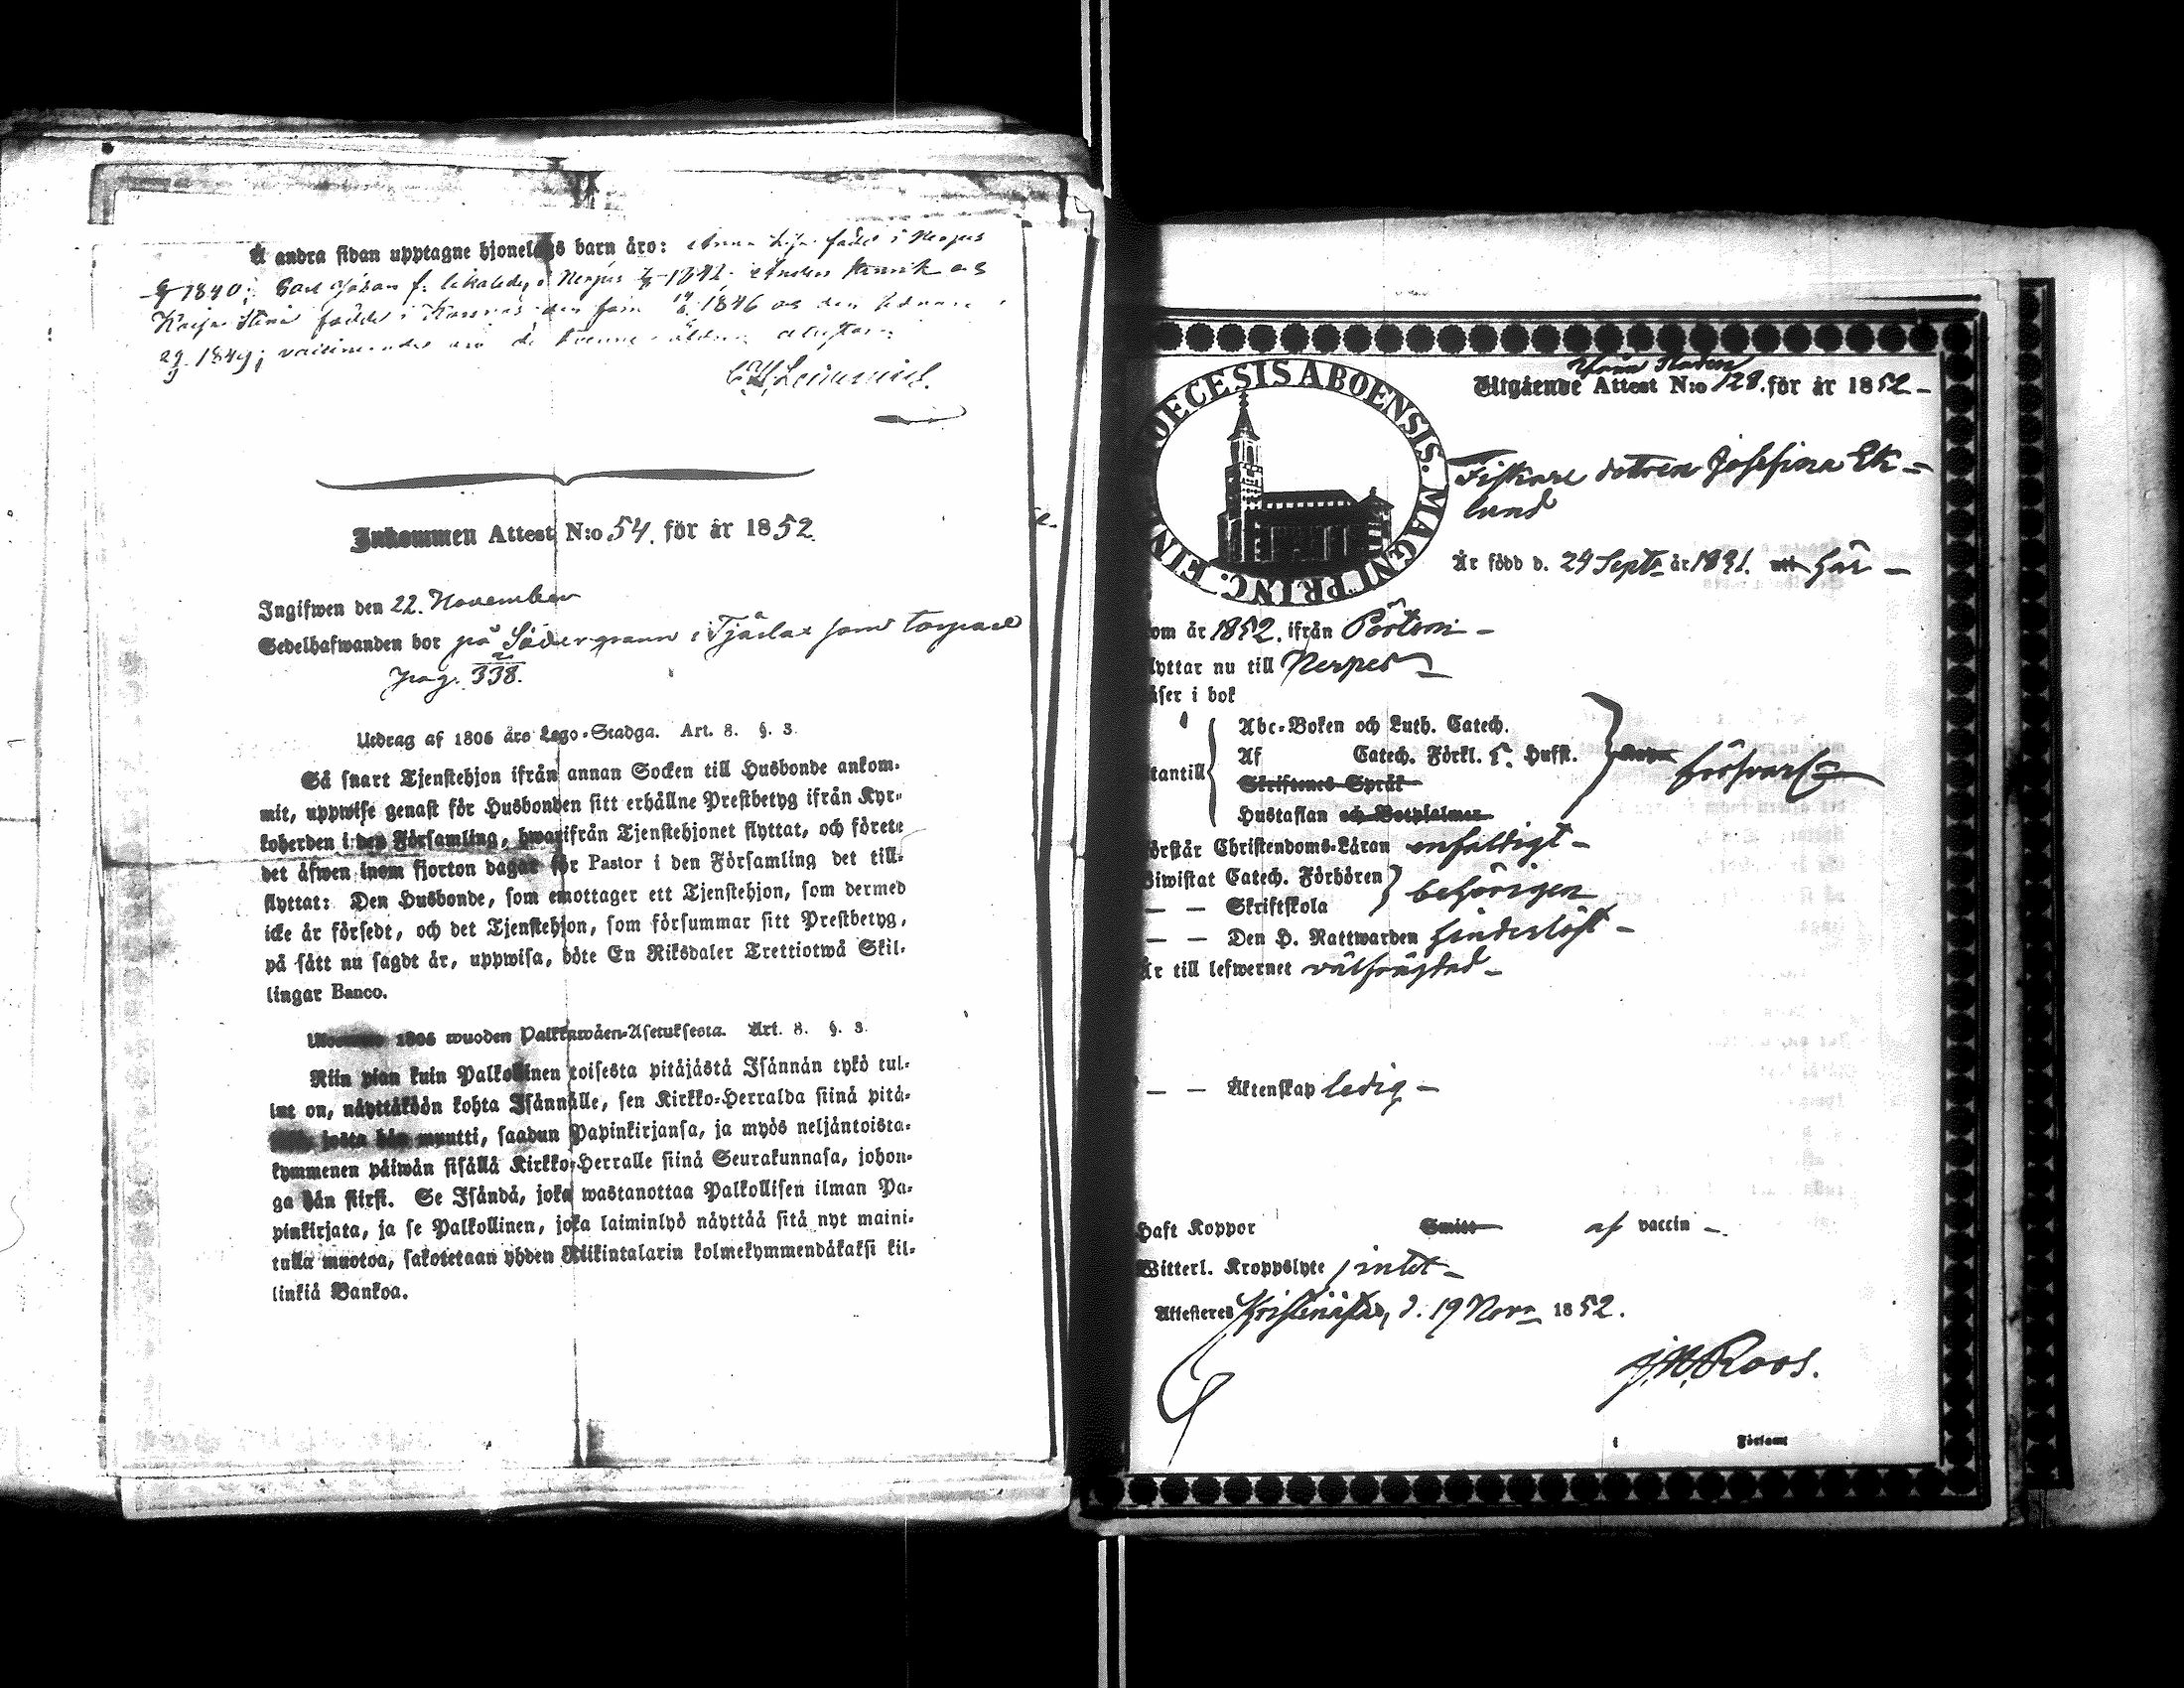 Å andra sidan upptagne hjonelags barn äro: Anna Lisa född i Nerpes
1840; Carl Johan f. likaledes i Nerpes 1842. Anders Henrik och
Kajsa Stina födde i Korsnäs den förra 1846 och den sednare
29 1849; äro de äldre
Inkommen Attest N:o 54. för år 1852.
Ingifwen den 22. November
Sedelhafwanden bor på Södergrann i Tjärlax som torpare
pag. 338.
Utdrag af 1805 års Lego-Stadga. Art. 8. §. 3.
Så snart Tjenstehjon ifrån annan Socken till Husbonde ankom-
mit, uppwise genast för Husbonden sitt erhållne Prestbetyg ifrån Kyr-
koherden i den Församling, hwarifrån Tjenstehjonet flyttat, och förete
det äfwen inom fjorton dagar för Pastor i den Församling det till-
flyttat: Den Husbonde, som emottager ett Tjenstehjon, som dermed
icke är försedt, och det Tjenstehjon, som försummar sitt Prestbetyg,
på sätt nu sagdt är, uppwisa, böte En Riksdaler Trettiotwå Skil-
lingar Banco.
1805 wuoden Palkkawäen-Asetuksesta. Art. 8. §. 3.
Niin pian kuin Palkollinen toisesta pitäjästä Isännän tykö tul-
lut on, näyttäköön kohta Isännälle, sen Kirkko-Herralda siinä pitä-
josta hän muutti, saadun Papinkirjansa, ja myös neljäntoista-
kymmenen päiwän sisällä Kirkko-Herralle siinä Seurakunnasa, johon-
ga hän siirst. Se Isändä, joka wastanottaa Palkollisen ilman Pa-
pinkirjata, ja se Palkollinen, joka laiminlyö näyttää sitä nyt maini-
tulla muotoa, sakotetaan yhden Riikintalarin kolmekymmendäkaksi kil-
linkiä Bankoa.
DIOECESIS ABOENSIS. MAGNI PRINC. FIN
Utgående Attest N:o 128. för år 1852
Fiskare dottren Josefina Ek-
lund
Är född d. 24 Septr år 1831. här
om år 1852. ifrån Pörtom
lyttar nu till Nerpes
äser i bok
Abc-Boken och Luth. Catech.
Af Catech. Förkl. Hufst. försvarl.
tantill
Skriftenes Språk
Hustaflan och Botpsalmer
örstår Christendoms-Läran enfaldigt
Biwistat Catech. Förhören behörigen
— — Skriftskola
— — Den H. Nattwarden hinderlöst
är till lefwernet välfrägdad
— — Äktenskap ledig
Haft Koppor Smitt af vaccin
Witterl. Kroppslyte intet
Attesteras Kristinestad, d. 19 Novr 1852.
J.W. Roos.